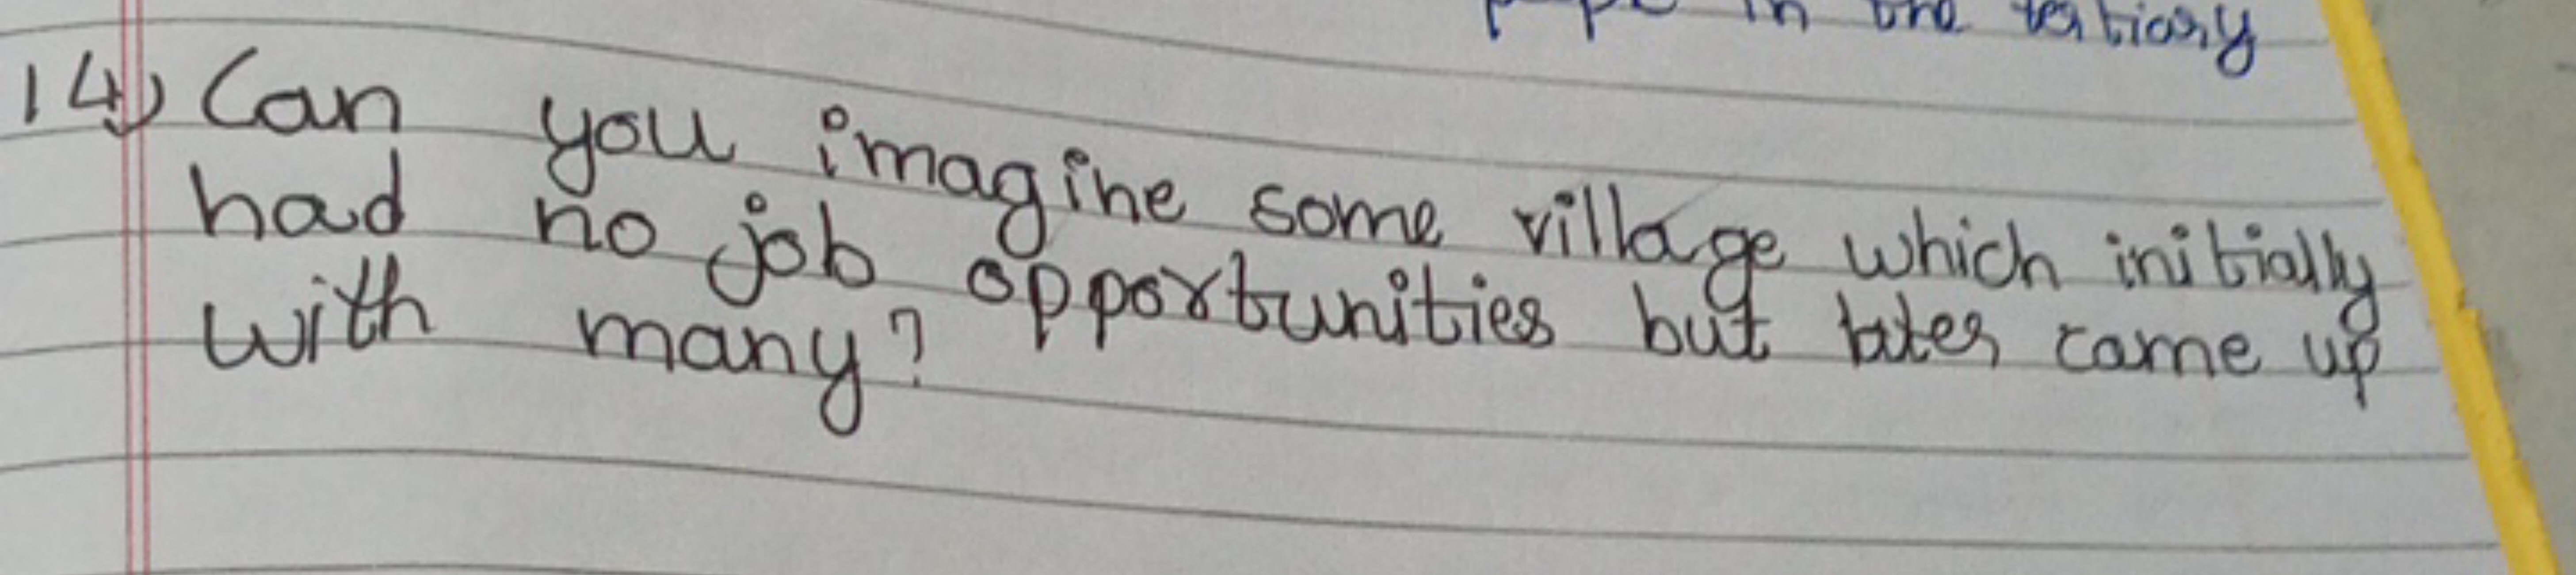 in the tertiary
14) Can you imagine some village which initially
had no job opportunities but later came up
with many?